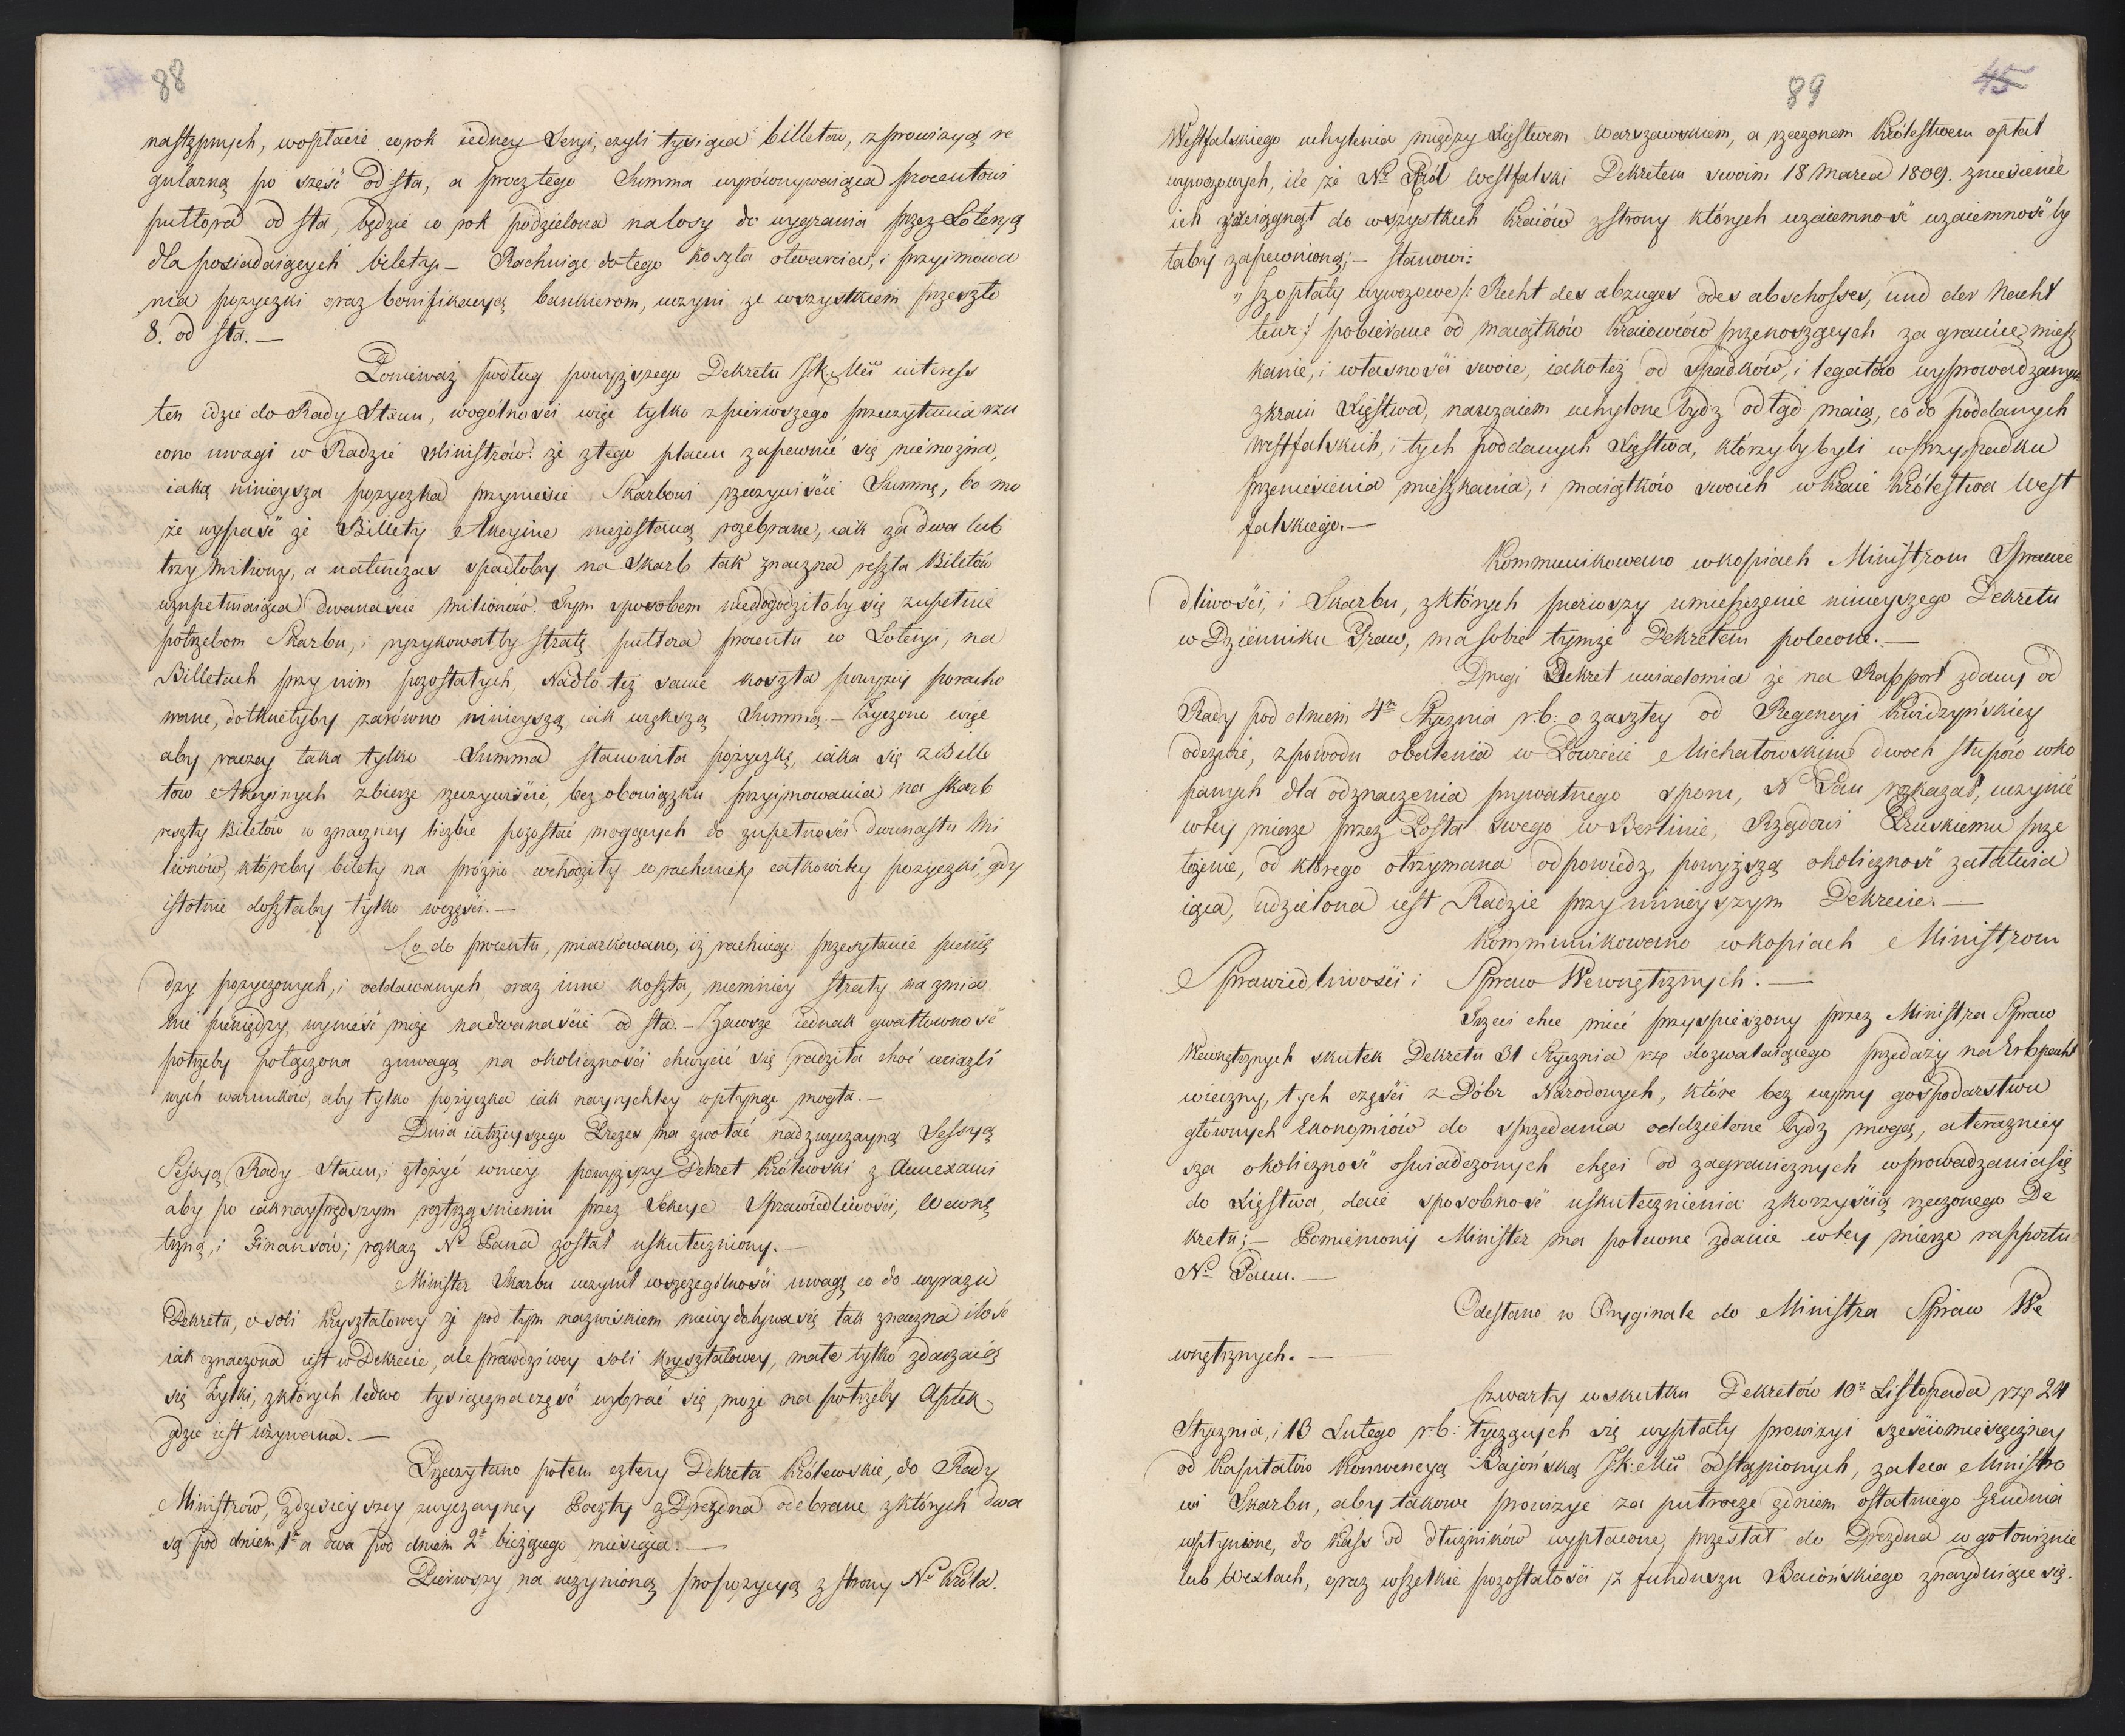 88
następnych, wopłacie corok iedney Seryi, czyli tysiąca billetow, zprowizyą re
gularną po sześć od sta, a procztego Summa wyrównywaiąca procentowi
pułtora od sta, będzie co rok podzielona na losy do wygrania przez Loteryą
dla posiadaiących bilety. – Rachuiąc dotego koszta otwarcia, i przyimowa
nia pożyczki oraz bonifikacyą bankierom, uczyni ze wszystkiem przeszło
8. od sta. —
Ponieważ podług powyższego Dekretu JK: Mci interess
ten idzie do Rady Stanu, wogólności więc tylko zpierwszego przeczytania rzu
cono uwagi w Radzie Ministrów: że ztego planu zapewnić się nie można,
iaką ninieysza pożyczka przyniesie Skarbowi rzeczywiście Summę, bo mo
że wypaść że Billety Akcyine niezostaną rozebrane, iak za dwa lub
trzy miliony, a natenczas spadłoby na Skarb tak znaczna reszta Biletów
uzupełniaiąca dwanaście milionów. Tym sposobem niedogodziłoby się zupełnie
potrzebom Skarbu, i ryzykowałby stratę pułtora procentu w Loteryi, na
Billetach przy nim pozostałych, Nadto też same koszta powyżey poracho
wane, dotknęłyby zarówno mnieyszą iak większą Summę. – Życzono więc
aby raczey taka tylko Summa stanowiła pożyczkę, iaka się z Bille
tow Akcyinych zbierze rzeczywiście, bez obowiązku przyimowania na skarb
reszty Biletów w znaczney liczbie pozostać mogących do zupełności dwunastu Mi
lionów, któreby bilety na próżno wchodziły w rachunek całkowitey pożyczki, gdy
istotnie doszłaby tylko wczęści. —
Co do procentu, miarkowano, iż rachuiąc przesyłanie pienię
dzy pożyczonych, i oddawanych, oraz inne koszta, niemniey straty na zmia
nie pieniędzy, wynieść może nadwanaście od sta. – Zawsze iednak gwałtowność
potrzeby połączona zuwagą na okoliczności chwycić się radziła choć uciążli
wych warunków, aby tylko pożyczka iak nayrychley wpłynąć mogła. —
Dnia iutrzeyszego Prezes ma zwołać nadzwyczayną Sessyą
Sessyą Rady Stanu, i złożyć wniey powyższy Dekret Królewski z Annexami
aby po iaknayprędszym roztrząśnieniu przez Sekcye Sprawiedliwości, Wewnę
trzną, i Finansów; rozkaz No Pana został uskuteczniony. —
Minister Skarbu uczynił wszczególności uwagę co do wyrazu
Dekretu, o soli kryształowey że pod tym nazwiskiem niewydobywa się tak znaczna ilość
iak oznaczona iest w Dekrecie, ale prawdziwey soli kryształowey, małe tylko zdarzaią
się żyłki, zktórych ledwo tysiączna część wybrać się może na potrzeby Aptek
gdzie iest używana. —
Przeczytano potem cztery Dekreta Królewskie, do Rady
Ministrow, zdzisieyszey zwyczayney Poczty z Drezna odebrane, zktórych dwa
są pod dniem 1o a dwa pod dniem 2o bieżącego miesiąca. —
Pierwszy na uczynioną propozycyą z strony No Króla.
89
45
Westfalskiego uchylenia między Xięstwem Warszawskiem, a rzeczonem Królestwem opłat
wywozowych, ile że No Król Westfalski Dekretem swoim 18 Marca 1809. zniesienie
ich rozciągnął do wszystkich kraiów zstrony których wzaiemność wzaiemność by
łaby zapewnioną; — stanowi:
„ Iż opłaty wywozowe /: Recht des abzuges oder abschosses, und der Nachs
teur :/ pobierane od maiątków kraiowców przenoszących za granicę miesz
kanie, i własności swoie, iakoteż od Spadków, i legatów wyprowadzanych
zkraiu Xięstwa, nawzaiem uchylone bydz odtąd maią, co do poddanych
westfalskich, i tych poddanych Xięstwa, którzyby byli wprzypadku
przeniesienia mieszkania, i maiątków swoich wkraie Królestwa West
falskiego. —
Kommunikowano wkopiach Ministrom Sprawie
dliwości, i Skarbu, zktórych pierwszy umieszczenie ninieyszego Dekretu
w Dzienniku Praw, ma sobie tymże Dekretem polecone. —
Drugi Dekret uwiadomia że na Rapport zdany od
Rady pod dniem 4m Stycznia r.b: o zaszłey od Regencyi Kwidzyńskiey
odezwie, zpowodu obalenia w Powiecie Michałowskim dwoch słupów wko
panych dla odznaczenia prywatnego sporu, N Pan rozkazał, uczynić
wtey mierze przez Posła swego w Berlinie, Rządowi Pruskiemu prze
łożenie, od którego otrzymana odpowiedz, powyższą okoliczność załatwia
iąca, udzielona iest Radzie przy ninieyszym Dekrecie. —
Kommunikowano wkopiach Ministrom
Sprawiedliwości i Spraw Wewnętrznych. —
Trzeci chce mieć przyspieszony przez Ministra Spraw
Wewnętrznych skutek Dekretu 31 Stycznia rzp dozwalaiącego przedaży na Erbpacht
wieczny, tych części z Dóbr Narodowych, które bez uymy gospodarstwu
głównych Ekonomiów do sprzedania oddzielone bydz mogą, a terazniey
sza okoliczność oświadczonych chęci od zagranicznych wprowadzania się
do Xięstwa, daie sposobność uskutecznienia zkorzyścią rzeczonego De
kretu; — Pomieniony Minister ma polecone zdanie wtey mierze rapportu
No Panu. —
Odesłano w Oryginale do Ministra Spraw We
wnętrznych. —
Czwarty wskutku Dekretów 10o Listopada rzp 24
Stycznia, i 13 Lutego r.b: tyczących się wypłaty prowizyi sześciomiesięczney
od Kapitałów Konwencyą Bajońską JK: Mci odstąpionych, zaleca Ministro
wi Skarbu, aby takowe prowizye za pułrocze zdniem ostatniego Grudnia
upłynione, do Kass od dłużników wypłacone, przesłał do Drezdna w gotowiznie
lub Wexlach, oraz wszelkie pozostałości z funduszu Baiońskiego znayduiące się.